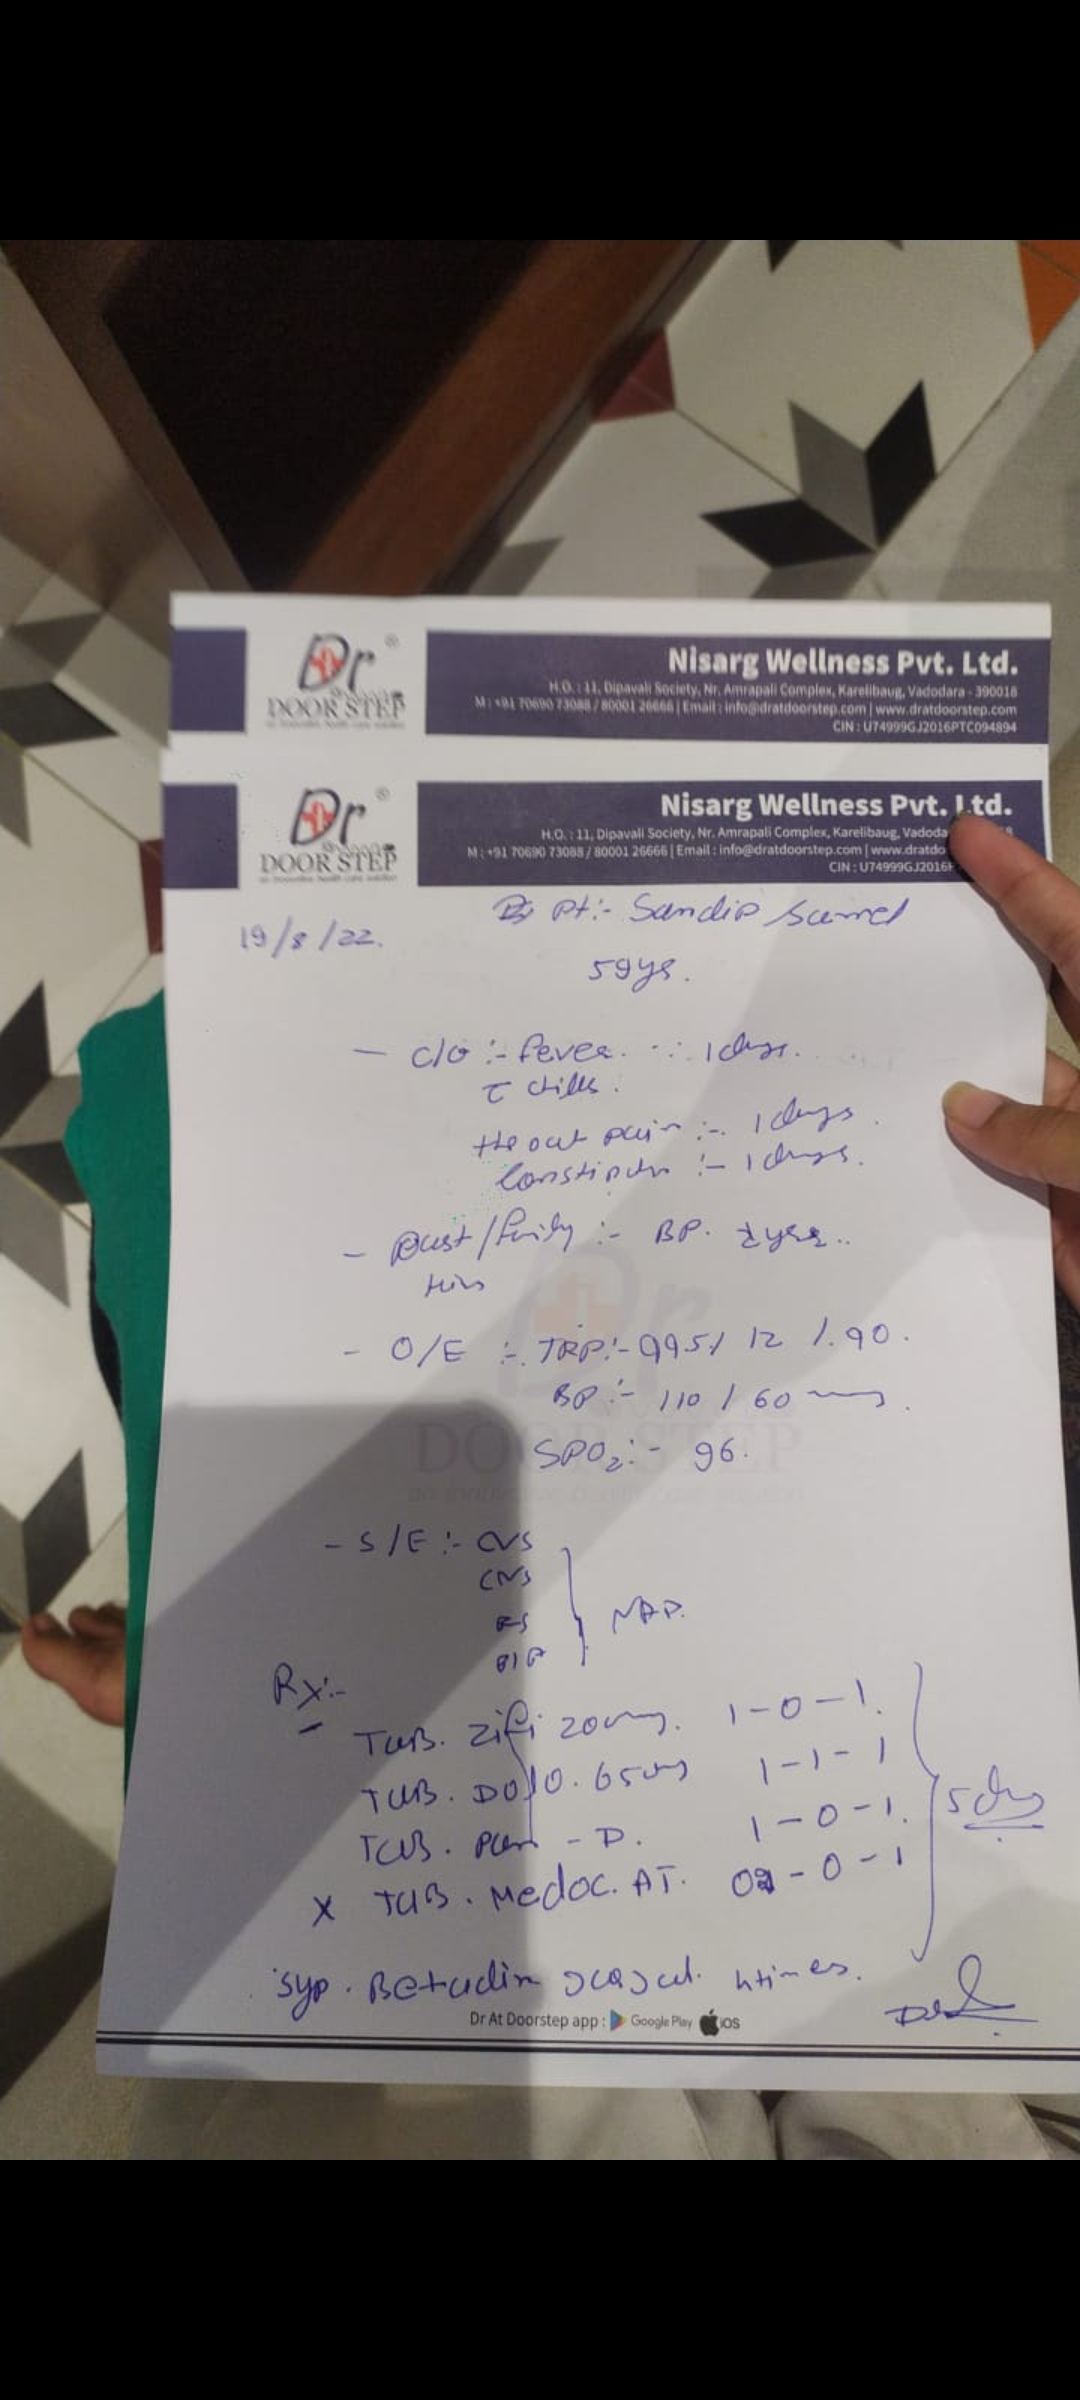 Dr ®
DOOR STEP
Nisarg Wellness Pvt. Ltd.
H.O. : 11, Dipavali Society, Nr. Amrapali Complex, Karelibaug, Vadodara - 390018
M : +91 70690 73088 / 80001 26666 | Email : info@dratdoorstep.com | www.dratdoorstep.com
CIN : U74999GJ2016PTC094894
Dr ®
DOOR STEP
Nisarg Wellness Pvt. Ltd.
H.O. : 11, Dipavali Society, Nr. Amrapali Complex, Karelibaug, Vadoda
M : +91 70690 73088 / 80001 26666 | Email : info@dratdoorstep.com | www.dratdo
CIN : U74999GJ2016P
19/8/22.
Pt:- Sandip
59 yrs.
- c/o :- fever. 1 days.
chills.
throat pain :- 1 days.
:- 1 days.
- past/family :- BP.
- O/E :- TRP:- 99.5 / 12 / 90.
BP :- 110 / 60
SPO2:- 96.
- S/E :- CVS
CNS
RS
P/A
NAD.
Rx:-
Tab. Zifi 200mg. 1-0-1.
Tab. Dolo. 650 1-1-1
Tab. Pan-D. 1-0-1.
5 days
X Tab. Medoc. AT. -0-1
Syp. Betadin times.
Dr At Doorstep app : Google Play iOS